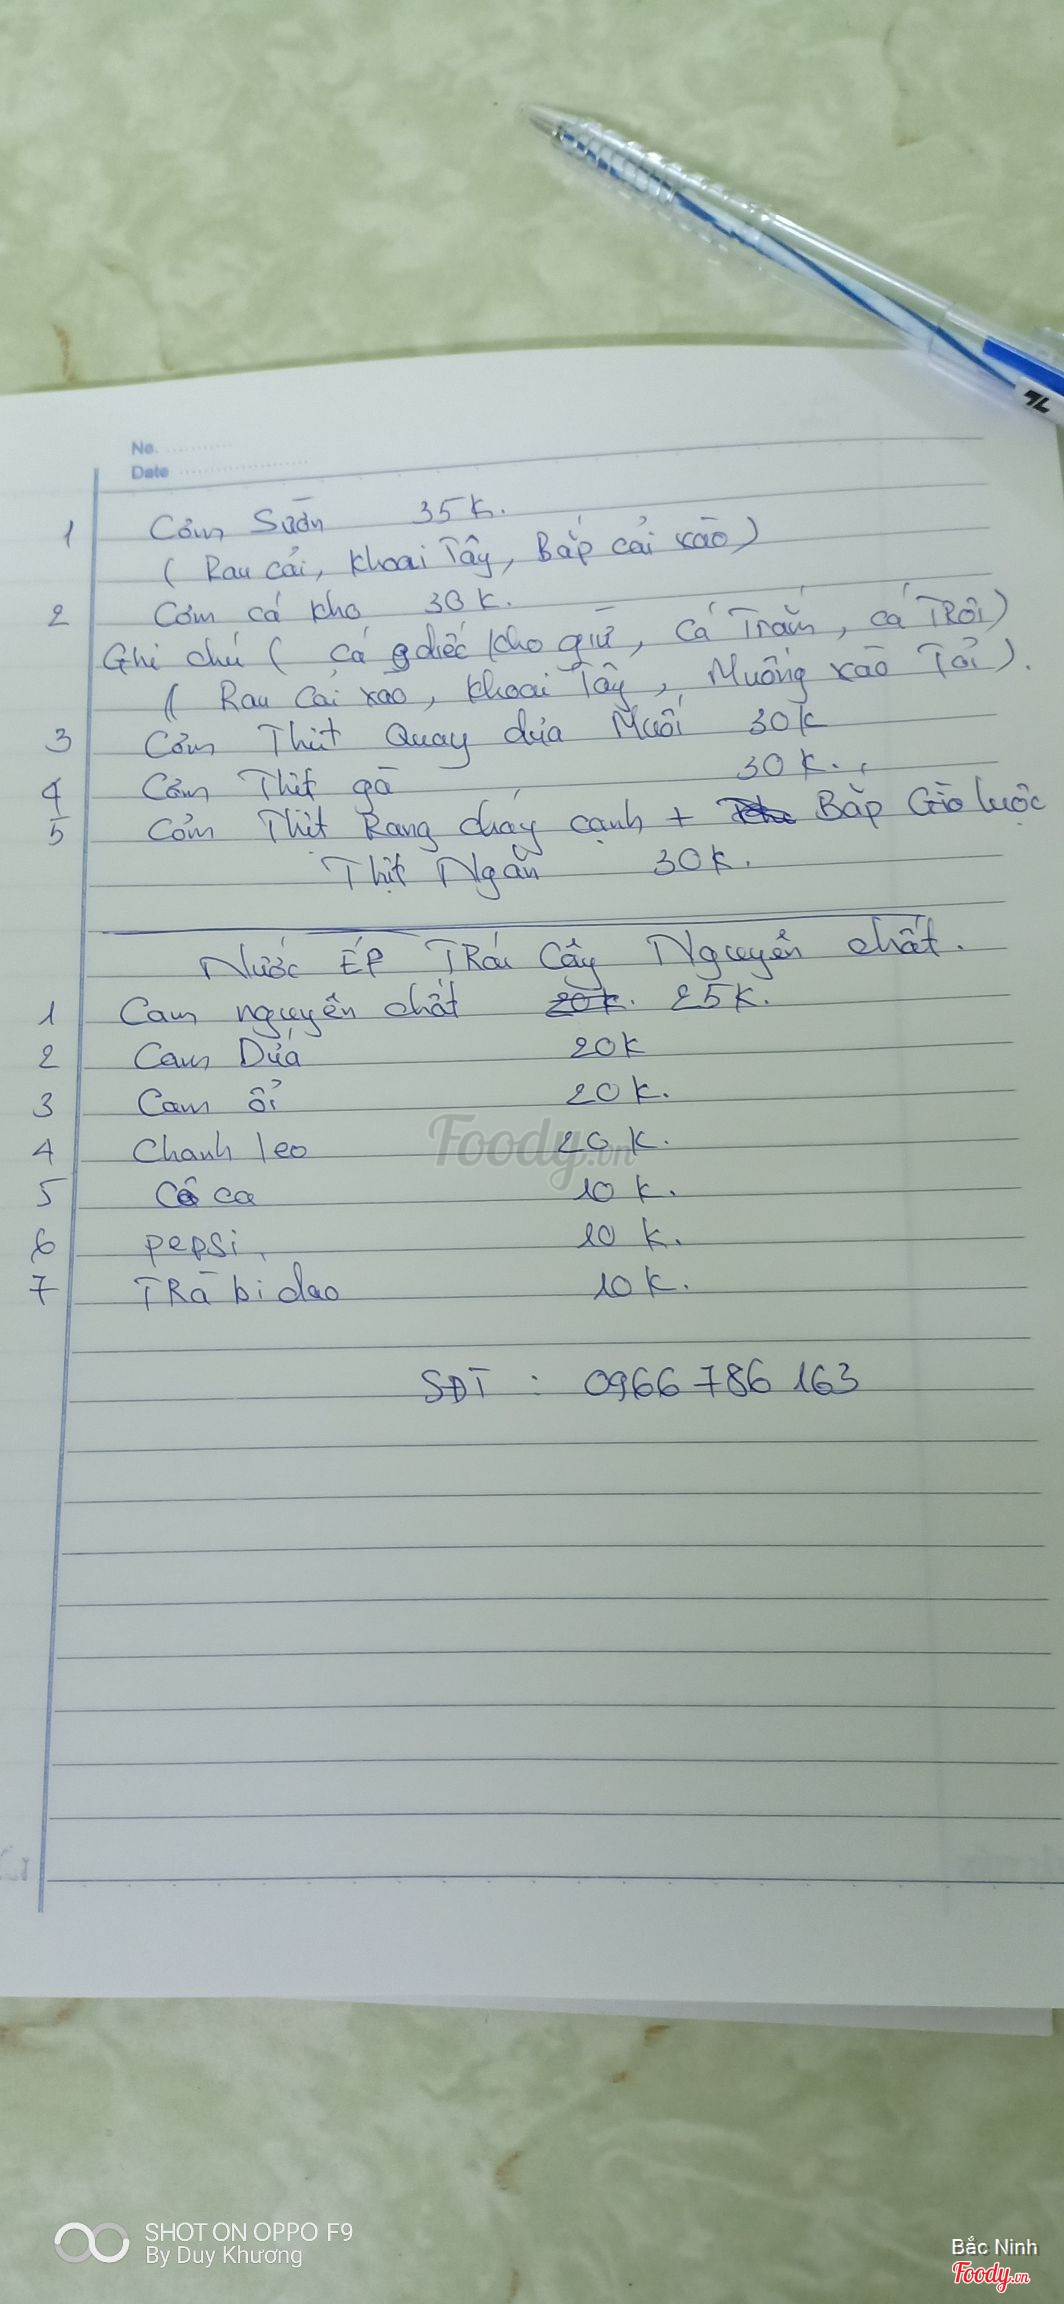 No.
Date
1 Cơm Sườn 35k.
( Rau cải, khoai Tây, Bắp cải xào)
2 Cơm cá kho 30k.
Ghi chú ( cá diếc kho giừ, cá Trắm, cá TRôi)
( Rau cải xào, khoai Tây, Muống xào Tỏi).
3 Cơm Thịt Quay dưa Muối 30k
4 Cơm Thịt gà 30k.
5 Cơm Thịt Rang cháy cạnh + Bắp Giò luộc
Thịt Ngan 30k.
Nước ÉP TRái Cây Nguyên chất.
1 Cam nguyên chất 20k. 25k.
2 Cam Dứa 20k
3 Cam ổi 20k.
4 Chanh leo 20k.
5 Cô ca 10k.
6 pepsi, 10k.
7 TRà bí đao 10k.
SĐT : 0966 786 163
Foody.vn
SHOT ON OPPO F9
By Duy Khương
Bắc Ninh
Foody.vn